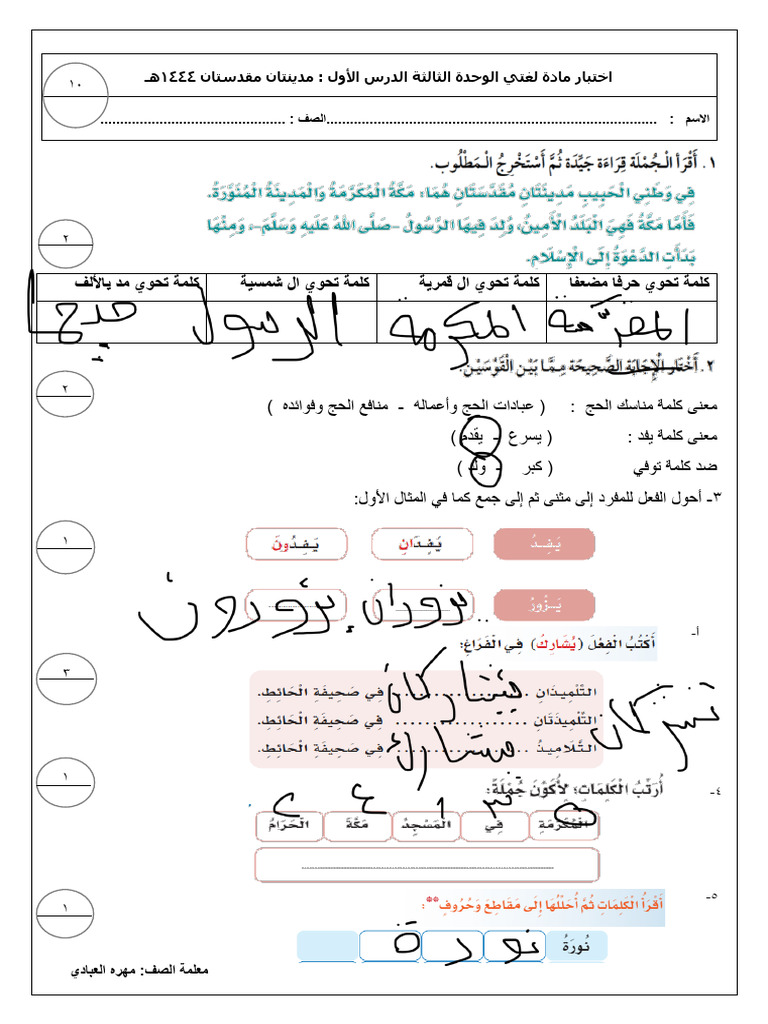 اختبار مادة لغتي الوحدة الثالثة الدرس الأول : مدينتان مقدستان ١٤٤٤هـ
١٠
الاسم : ...........................................................................الصف : ..........................................
١. أَقْرَأُ الْجُمْلَةَ قِرَاءَةً جَيِّدَةً ثُمَّ أَسْتَخْرِجُ الْمَطْلُوبَ.
فِي وَطَنِي الْحَبِيبِ مَدِينَتَانِ مُقَدَّسَتَانِ هُمَا: مَكَّةُ الْمُكَرَّمَةُ وَالْمَدِينَةُ الْمُنَوَّرَةُ.
فَأَمَّا مَكَّةُ فَهِيَ الْبَلَدُ الْأَمِينُ، وُلِدَ فِيهَا الرَّسُولُ -صَلَّى اللهُ عَلَيْهِ وَسَلَّمَ-، وَمِنْهَا
٢
بَدَأَتِ الدَّعْوَةُ إِلَى الْإِسْلَامِ.
كلمة تحوي حرفا مضعفا كلمة تحوي ال قمرية كلمة تحوي ال شمسية كلمة تحوي مد بالألف
المكرمة الرسول
٢. أَخْتَارُ الْإِجَابَةَ الصَّحِيحَةَ مِمَّا بَيْنَ الْقَوْسَيْنِ.
٢
معنى كلمة مناسك الحج : ( عبادات الحج وأعماله - منافع الحج وفوائده )
معنى كلمة يفد : ( يسرع - يقدم )
ضد كلمة توفي ( كبر - ولد )
٣- أحول الفعل للمفرد إلى مثنى ثم إلى جمع كما في المثال الأول:
١
يَـفِـدُ يَـفِـدَانِ يَـفِـدُونَ
يَــزُورُ يزوران يزورون
أ-
أَكْتُبُ الْفِعْلَ (يُشَارِكُ) فِي الْفَرَاغِ:
٣
التِّلْمِيذَانِ يشاركان فِي صَحِيفَةِ الْحَائِطِ.
التِّلْمِيذَتَانِ .................. فِي صَحِيفَةِ الْحَائِطِ.
التَّلَامِيذُ .................. فِي صَحِيفَةِ الْحَائِطِ.
١
٤- أُرَتِّبُ الْكَلِمَاتِ؛ لِأُكَوِّنَ جُمْلَةً:
٥ ٣ ١ ٤ ٢
الْمُكَرَّمَةِ فِي الْمَسْجِدُ مَكَّةَ الْحَرَامُ
٥-
١
أَقْرَأُ الْكَلِمَاتِ ثُمَّ أُحَلِّلُهَا إِلَى مَقَاطِعَ وَحُرُوفٍ**:
نُورَةُ نو ر ة
معلمة الصف: مهره العبادي